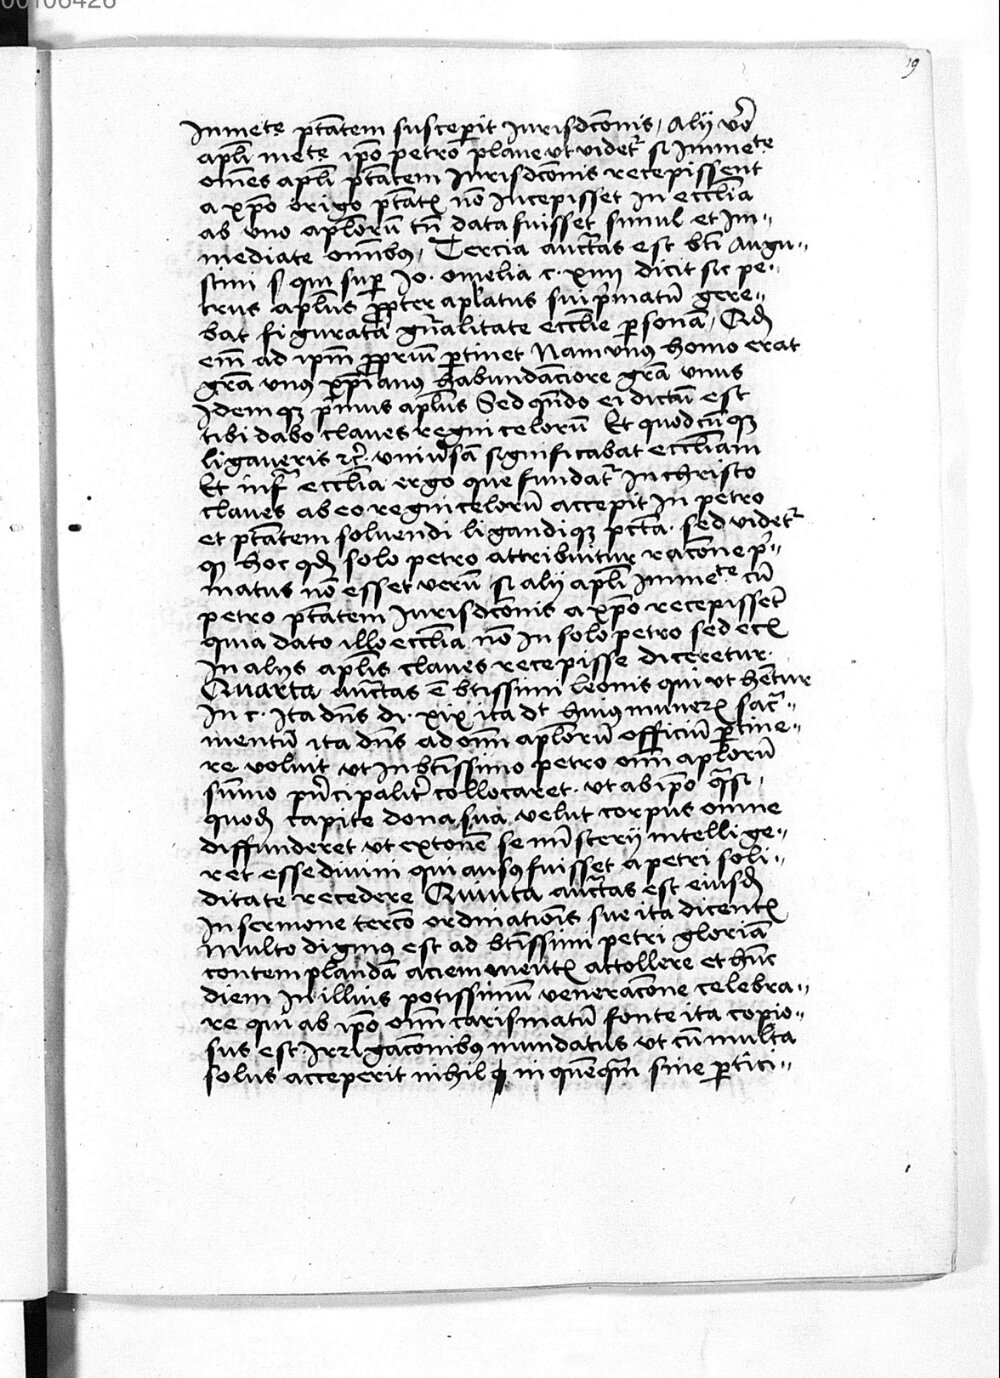 00106426
19
Inmete ptātem susceperit Jurisdcōnis, Alij vō
apli mete ipō petro plane vt videt' si Inmete
omēs apli ptātem Jurisdcōnis recepissent
a xpō origo ptāt' nō Incepisset In ecclīa
ab vno aplorū cū data fuisset simul et Im-
mediate omībus, Tercia auctās est btī Augu-
stini qui sup Jo. omelia c. xxiiij dicit sic pe-
trus aplus ppter aplatus sui pmatū gere-
bat figurata gnālitate ecclie psonā, Qd
enī ad ipm ppriū ptinet Nam vnus homo erat
grā vnus xpianus habundāciore grā vnus
Idemque pmus aplus Sed qndo ei dictū est
tibi dabo claues regni celorū Et quodcūque
ligaueris etc. vniuersā significabat eccliam
Et infra ecclia ergo que fundat' In christo
claues ab eo regni celorū accepit In petro
et ptātem soluendi ligandique pctā. Sed videt'
q hoc qd solo petro attribuitur racōne p-
matus nō esset verū si alij apli Inmete cū
petro ptātem Jurisdcōnis a xpō recepisset
quia dato illo ecclia nō In solo petro sed eciā
In alijs aplis claues recepisse diceretur.
Quarta auctās ē btissimi leonis qui vt hētur
In c. Ita dns di. xix ita dt huius muneris sacra-
mentū ita dns ad omī aplorū officiū ptine-
re voluit vt In btissimo petro omī aplorū
sūmo pncipaliter collocaret. vt ab ipō quasi
quod capite dona sua velut corpus omne
diffunderet vt extorrē se mīsterij intellige-
ret esse diuini qui ausus fuisset a petri soli-
ditate recedere Quinta auctās est eiusd
In sermone tercō ordinationis sue ita dicentis
Multo dignius est ad btissimi petri gloriā
contemplandā aciem mentis attollere et hūc
diem In illius potissimū veneracōne celebra-
re qui ab ipō omī carismatū fonte ita copio-
sus est Irrigacōnibus inundatus vt cū multa
solus acceperit nihil in quēqm sine ptici-